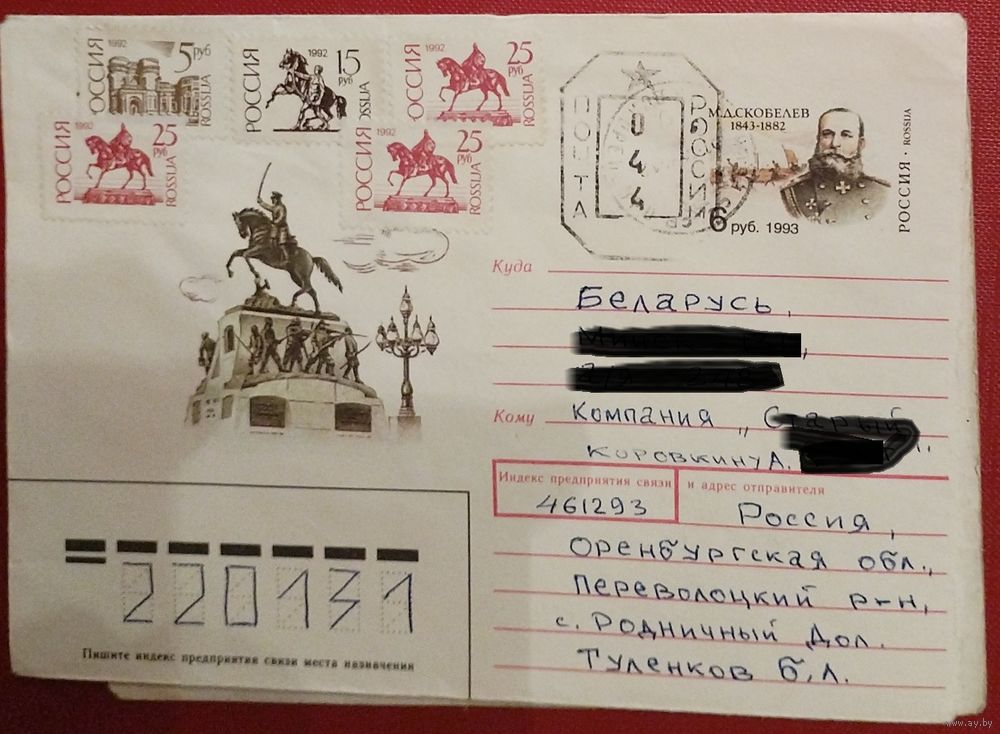 РОССИЯ 1992 5 руб ROSSIJA
РОССИЯ 1992 15 руб ROSSIJA
РОССИЯ 1992 25 руб ROSSIJA
РОССИЯ 1992 25 руб ROSSIJA
РОССИЯ 1992 25 руб ROSSIJA
РОССИЯ
ПОЧТА
0
4
4
М.Д.СКОБЕЛЕВ
1843-1882
6 руб. 1993
РОССИЯ · ROSSIJA
Куда
Беларусь,
Кому Компания „Старый
Коровкину А.
Индекс предприятия связи и адрес отправителя
461293
Россия,
Оренбургская обл.,
Переволоцкий р-н,
с. Родничный Дол.
Туленков Б.Л.
220131
Пишите индекс предприятия связи места назначения
www.ay.by